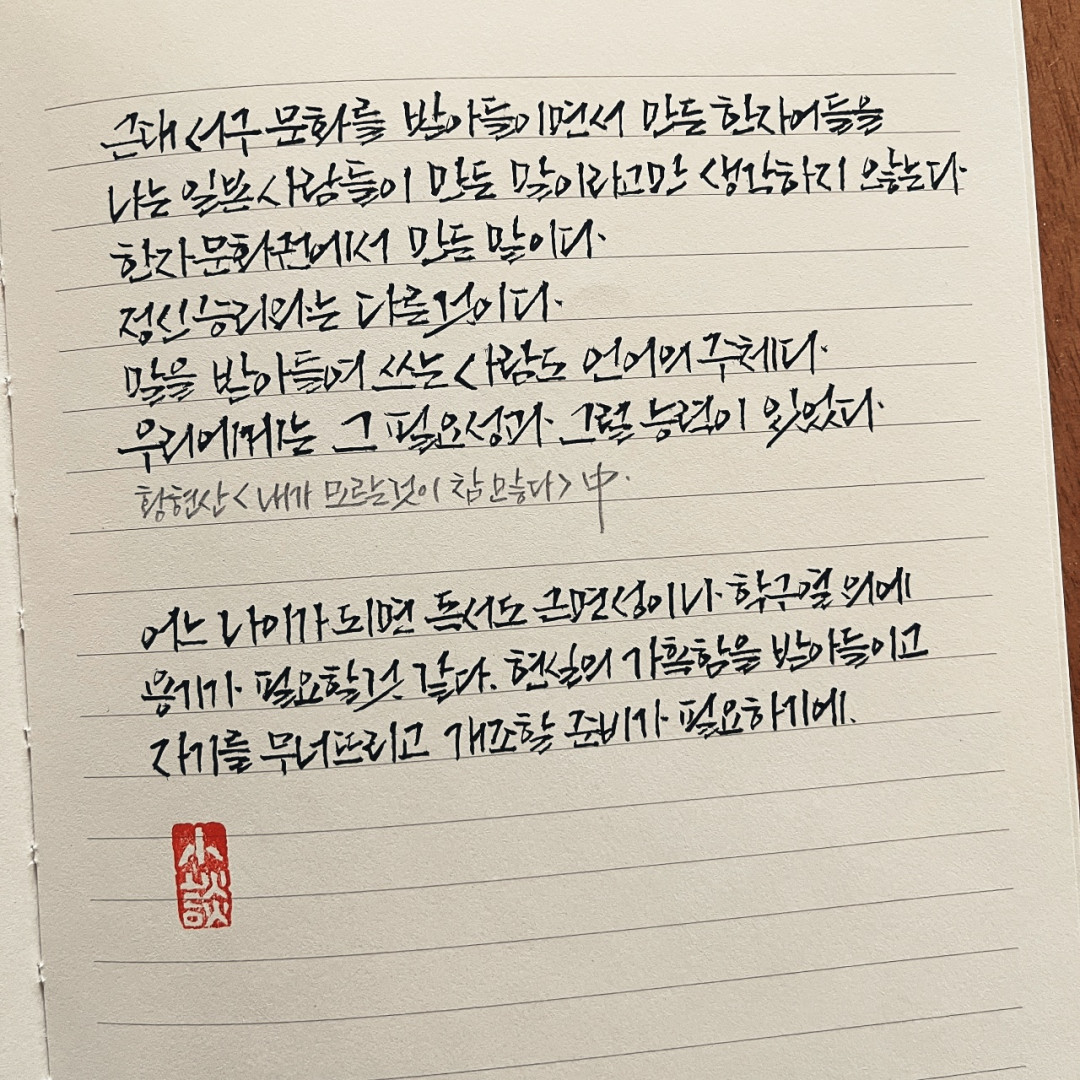 근대 서구 문화를 받아들이면서 만든 한자어들을
나는 일본 사람들이 만든 말이라고만 생각하지 않는다.
한자문화권에서 만든 말이다.
정신승리와는 다른것이다.
말을 받아들여 쓰는 사람도 언어의 주체다.
우리에게는 그 필요성과 그럴 능력이 있었다.
황현산 <내가 모르는것이 참 많다> 中.
어느 나이가 되면 독서도 근면성이나 학구열 외에
용기가 필요할것 같다. 현실의 가혹함을 받아들이고
자기를 무너뜨리고 개조할 준비가 필요하기에.
小談